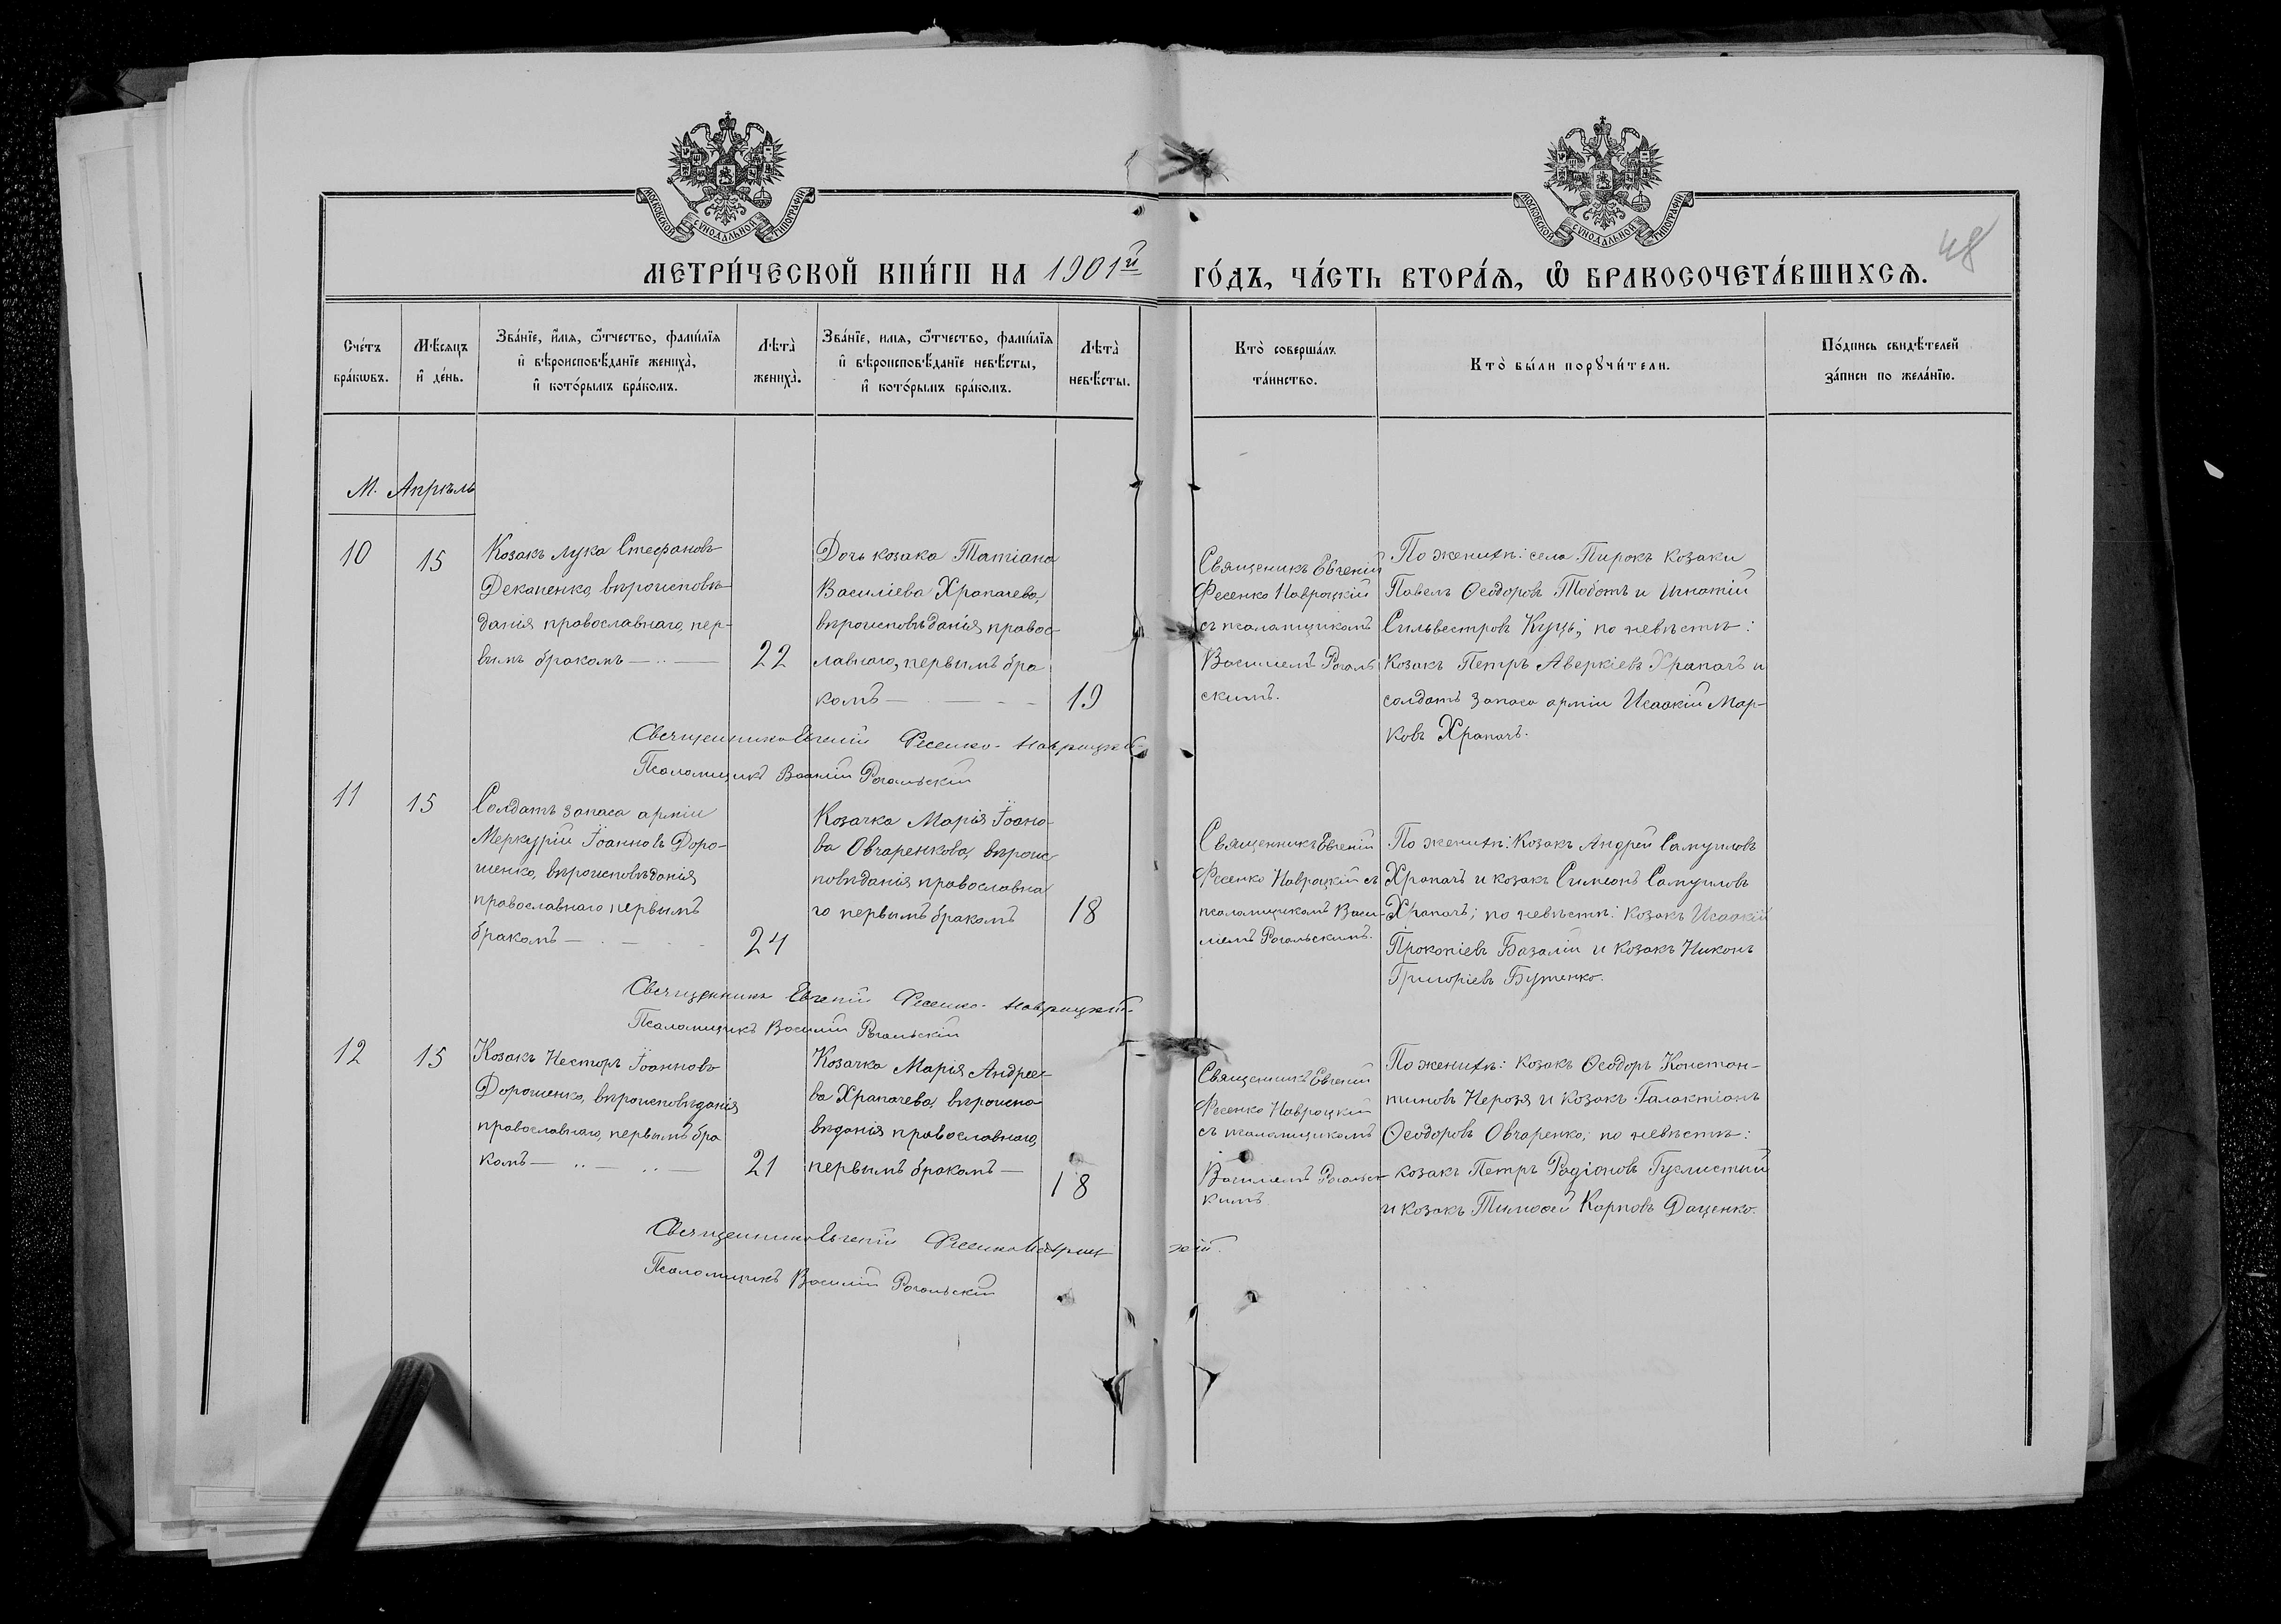 МОСКОВСКОЙ СѴНОДАЛЬНОЙ ТИПОГРАФІИ
МОСКОВСКОЙ СѴНОДАЛЬНОЙ ТИПОГРАФІИ
48
МЕТРИ́ЧЕСКОЙ КНИ́ГИ НА 1901й ГО́ДЪ, ЧА́СТЬ ВТОРА́Ѧ, Ѽ БРАКОСОЧЕТА́ВШИХСѦ.
Сче́тъ
бра́кѡвъ.
Мѣ́сяцъ
и҆ де́нь.
Зва́нїе, и҆́мя, ѻ҆́тчество, фами́лїя
и҆ вѣроисповѣ́данїе жениха̀,
и҆ кото́рымъ бра́комъ.
Лѣта̀
жениха̀.
Зва́нїе, имя, ѻ҆́тчество, фами́лїя
и҆ вѣроисповѣ́данїе невѣ́сты,
и҆ кото́рымъ бра́комъ.
Лѣта̀
невѣ́сты.
Кто̀ соверша́лъ
та́инство.
Кто̀ бы́ли порꙋчи́тели.
По́дпись свидѣ́телей
за́писи по жела́нїю.
М. Апрѣль
10
15
Козакъ Лука Стефановъ
Деканенко, вѣроисповѣ-
данія православнаго, пер-
вымъ бракомъ
22
Дочь козака Татіана
Василіева Храпачева,
вѣроисповѣданія правос-
лавнаго, первымъ бра
комъ
19
Священникъ Евгеній
Фесенко Навроцкій
съ псаломщикомъ
Василіемъ Рогаль
скимъ.
По женихѣ: села Пирокъ козаки
Павелъ Ѳеодоровъ Тоботъ и Игнатій
Сильвестровъ Куць; по невѣстѣ:
Козакъ Петръ Аверкіевъ Храпачъ и
солдатъ запаса арміи Исаакій Мар-
ковъ Храпачъ.
Священникъ Евгеній Фесенко-Навроцкій
Псаломщикъ Василій Рогальскій
11
15
Солдатъ запаса арміи
Меркурій Іоанновъ Доро-
шенко, вѣроисповѣданія
православнаго первымъ
бракомъ
24
Козачка Марія Іоано-
ва Овчаренкова, вѣроис
повѣданія православна
го первымъ бракомъ
18
Священникъ Евгеній
Фесенко Навроцкій съ
псаломщикомъ Васи-
ліемъ Рогальскимъ.
По женихѣ: Козакъ Андрей Самуиловъ
Храпачъ и козакъ Симеонъ Самуиловъ
Храпачъ; по невѣстѣ: козакъ Исаакій
Прокопіевъ Базалій и козакъ Никонъ
Григоріевъ Бутенко.
Священникъ Евгеній Фесенко-Навроцкій
Псаломщикъ Василій Рогальскій
12
15
Козакъ Несторъ Іоанновъ
Дорошенко, вѣроисповѣданія
православнаго, первымъ бра
комъ
21
Козачка Марія Андрее-
ва Храпачева, вѣроиспо
вѣданія православнаго,
первымъ бракомъ
18
Священникъ Евгеній
Фесенко Навроцкій
съ псаломщикомъ
Василіемъ Рогальс-
кимъ
По женихѣ: козакъ Ѳеодоръ Констан-
тиновъ Нерозя и козакъ Галактіонъ
Ѳеодоровъ Овчаренко; по невѣстѣ:
козакъ Петръ Родіоновъ Гуглистый
и козакъ Тимоѳей Карповъ Даценко.
Священникъ Евгеній Фесенко Навроцкій.
Псаломщикъ Василій Рогальскій